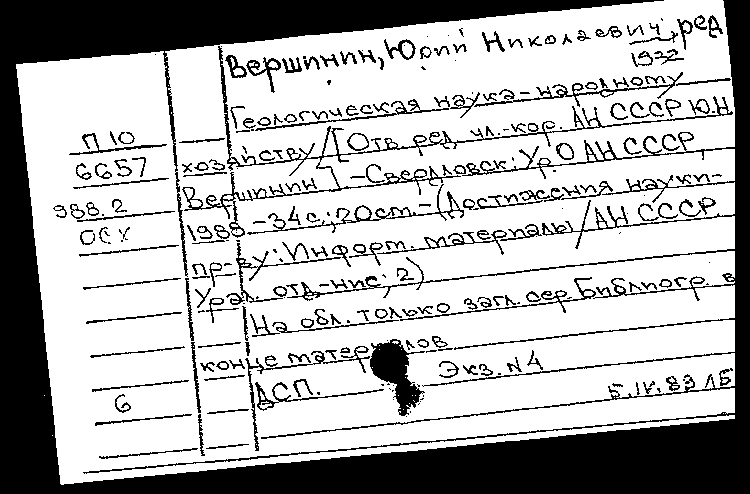 Вершинин, Юрий Николаевич, ред
1932
Геологическая наука - народному
П 10
хозяйству / [Отв. ред. чл.-кор. АН СССР Ю.Н.
6657
Вершинин]. - Свердловск: УрО АН СССР,
988.2
1988. - 34 с.; 20 см. - (Достижения науки -
ОСХ
пр-ву: Информ. материалы / АН СССР.
Урал. отд-ние; 2)
На обл. только загл. сер. Библиогр. в
конце материалов
ДСП. Экз. N 4
6
5.IV.89 ЛБ